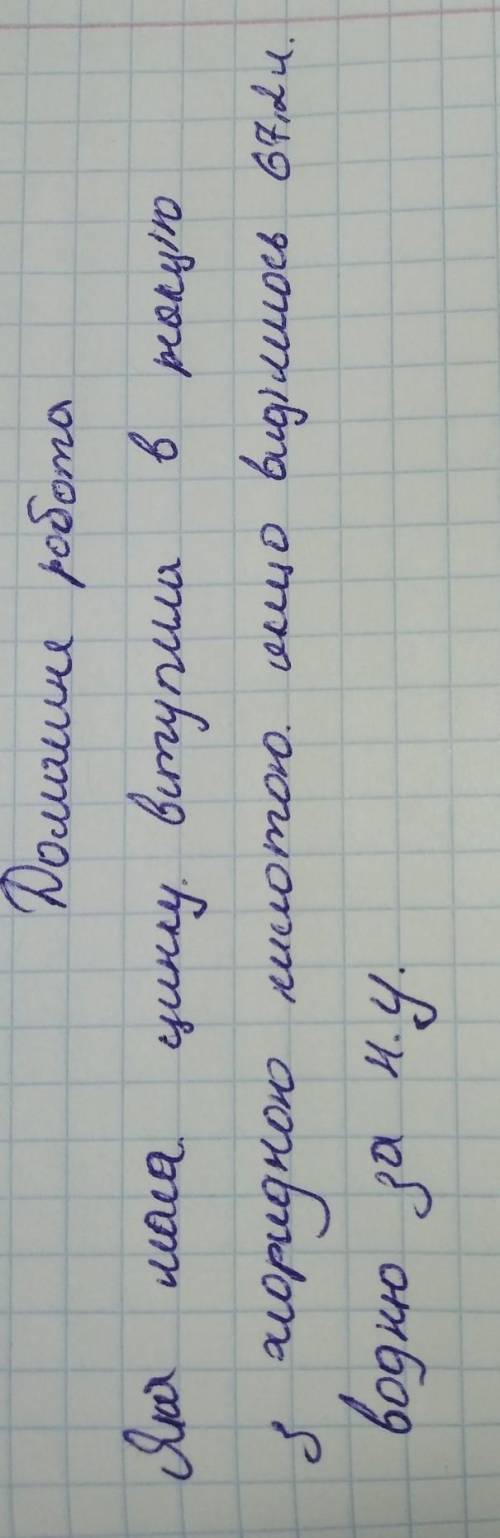 Домашня робота
Яка маса цинку вступила в реакцію
з хлоридною кислотою якщо виділилось 67,2 л.
водню за н.у.